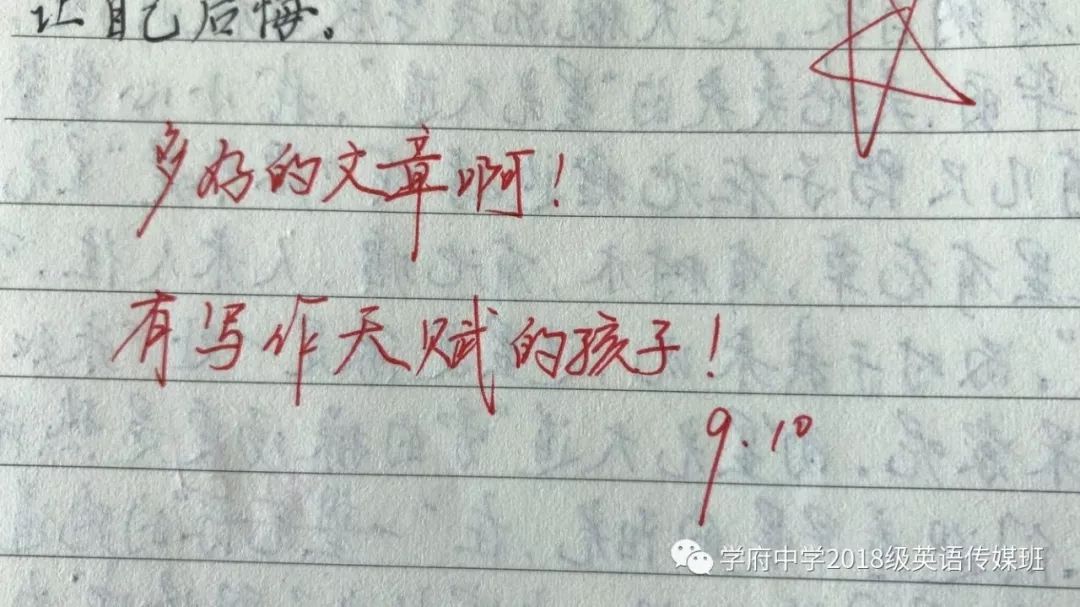 让自己后悔。
多好的文章啊！
有写作天赋的孩子！
9.10
学府中学2018级英语传媒班